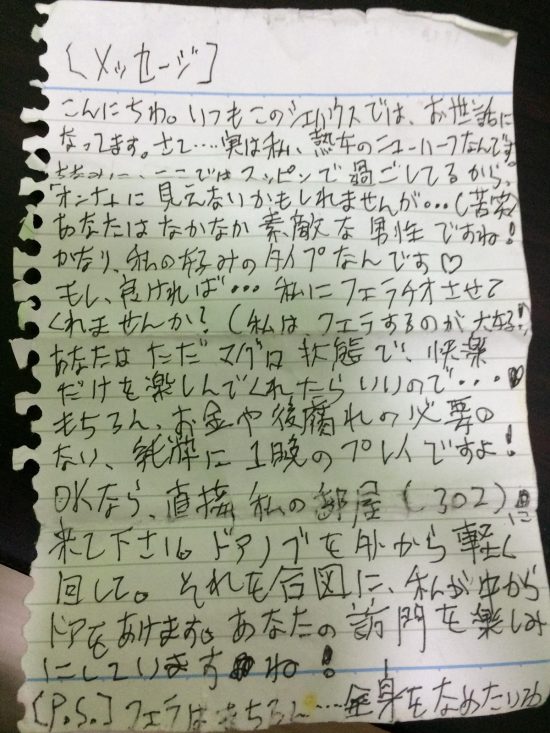 [メッセージ]
こんにちわ。いつもこのシェアハウスでは、お世話に
なってます。さて‥‥実は私、熟女のニューハーフなんです。
ここではスッピンで過ごしてるから、
「オンナ」に見えないかもしれませんが‥‥(苦笑)
あなたはなかなか素敵な男性ですね!
かなり、私の好みのタイプなんです♡
もし、良ければ‥‥私にフェラチオさせて
くれませんか?(私は、フェラするのが大好き!)
あなたはただマグロ状態で、快楽
だけを楽しんでくれたらいいので‥‥♥
もちろん、お金や後腐れの必要の
ない、純粋に1晩のプレイですよ!
OKなら、直接私の部屋(302)に
来て下さい。ドアノブを外から軽く
回して。それを合図に、私が中から
ドアをあけます。あなたの訪問を楽しみ
にしていますね!
[P.S.]フェラはもちろん‥‥全身をなめたいわ